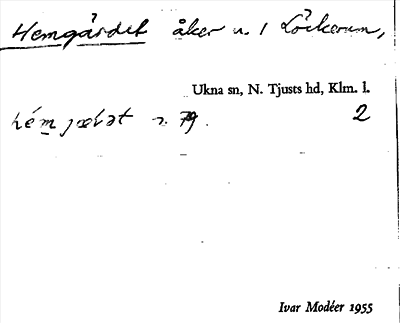 Hemgärdet åker n. 1 Löckerum,
Ukna sn, N. Tjusts hd, Klm. l.
2
hém n. 79.
Ivar Modéer 1955